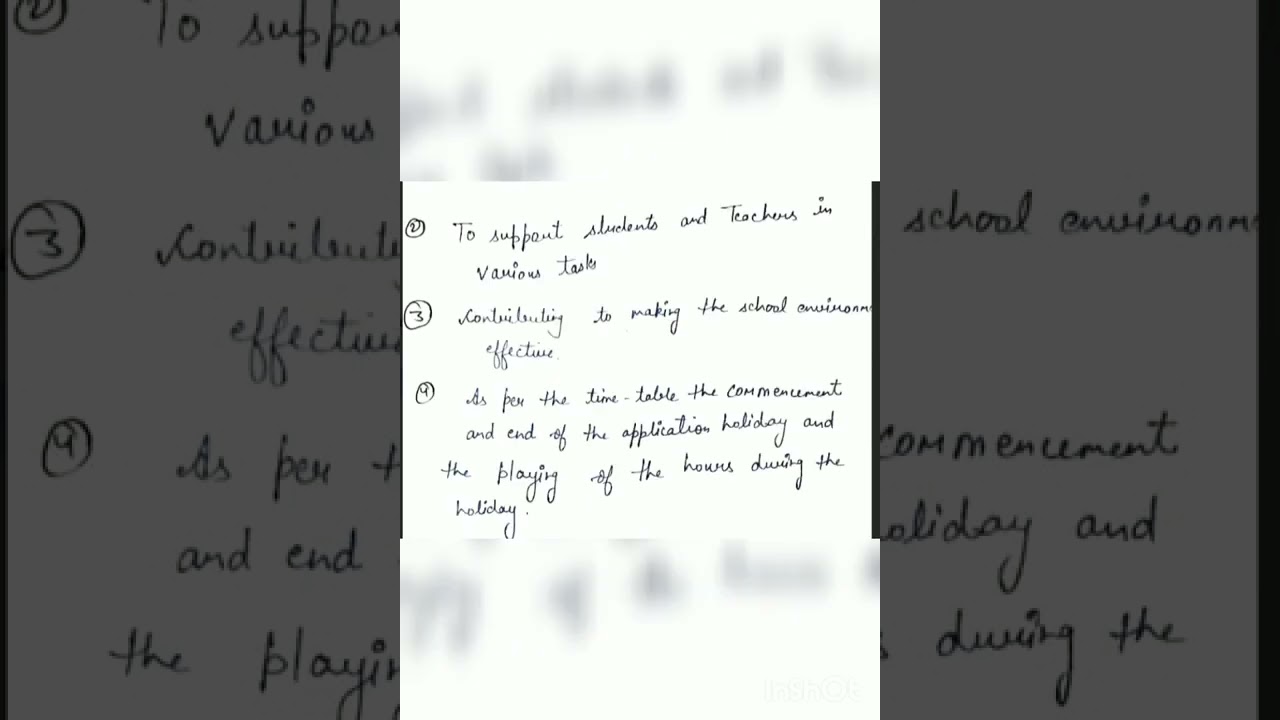 ② To support students and Teachers in
various tasks
③ Contributing to making the school environm
effective.
④ As per the time-table the commencement
and end of the application holiday and
the playing of the hours during the
holiday.
InShOt